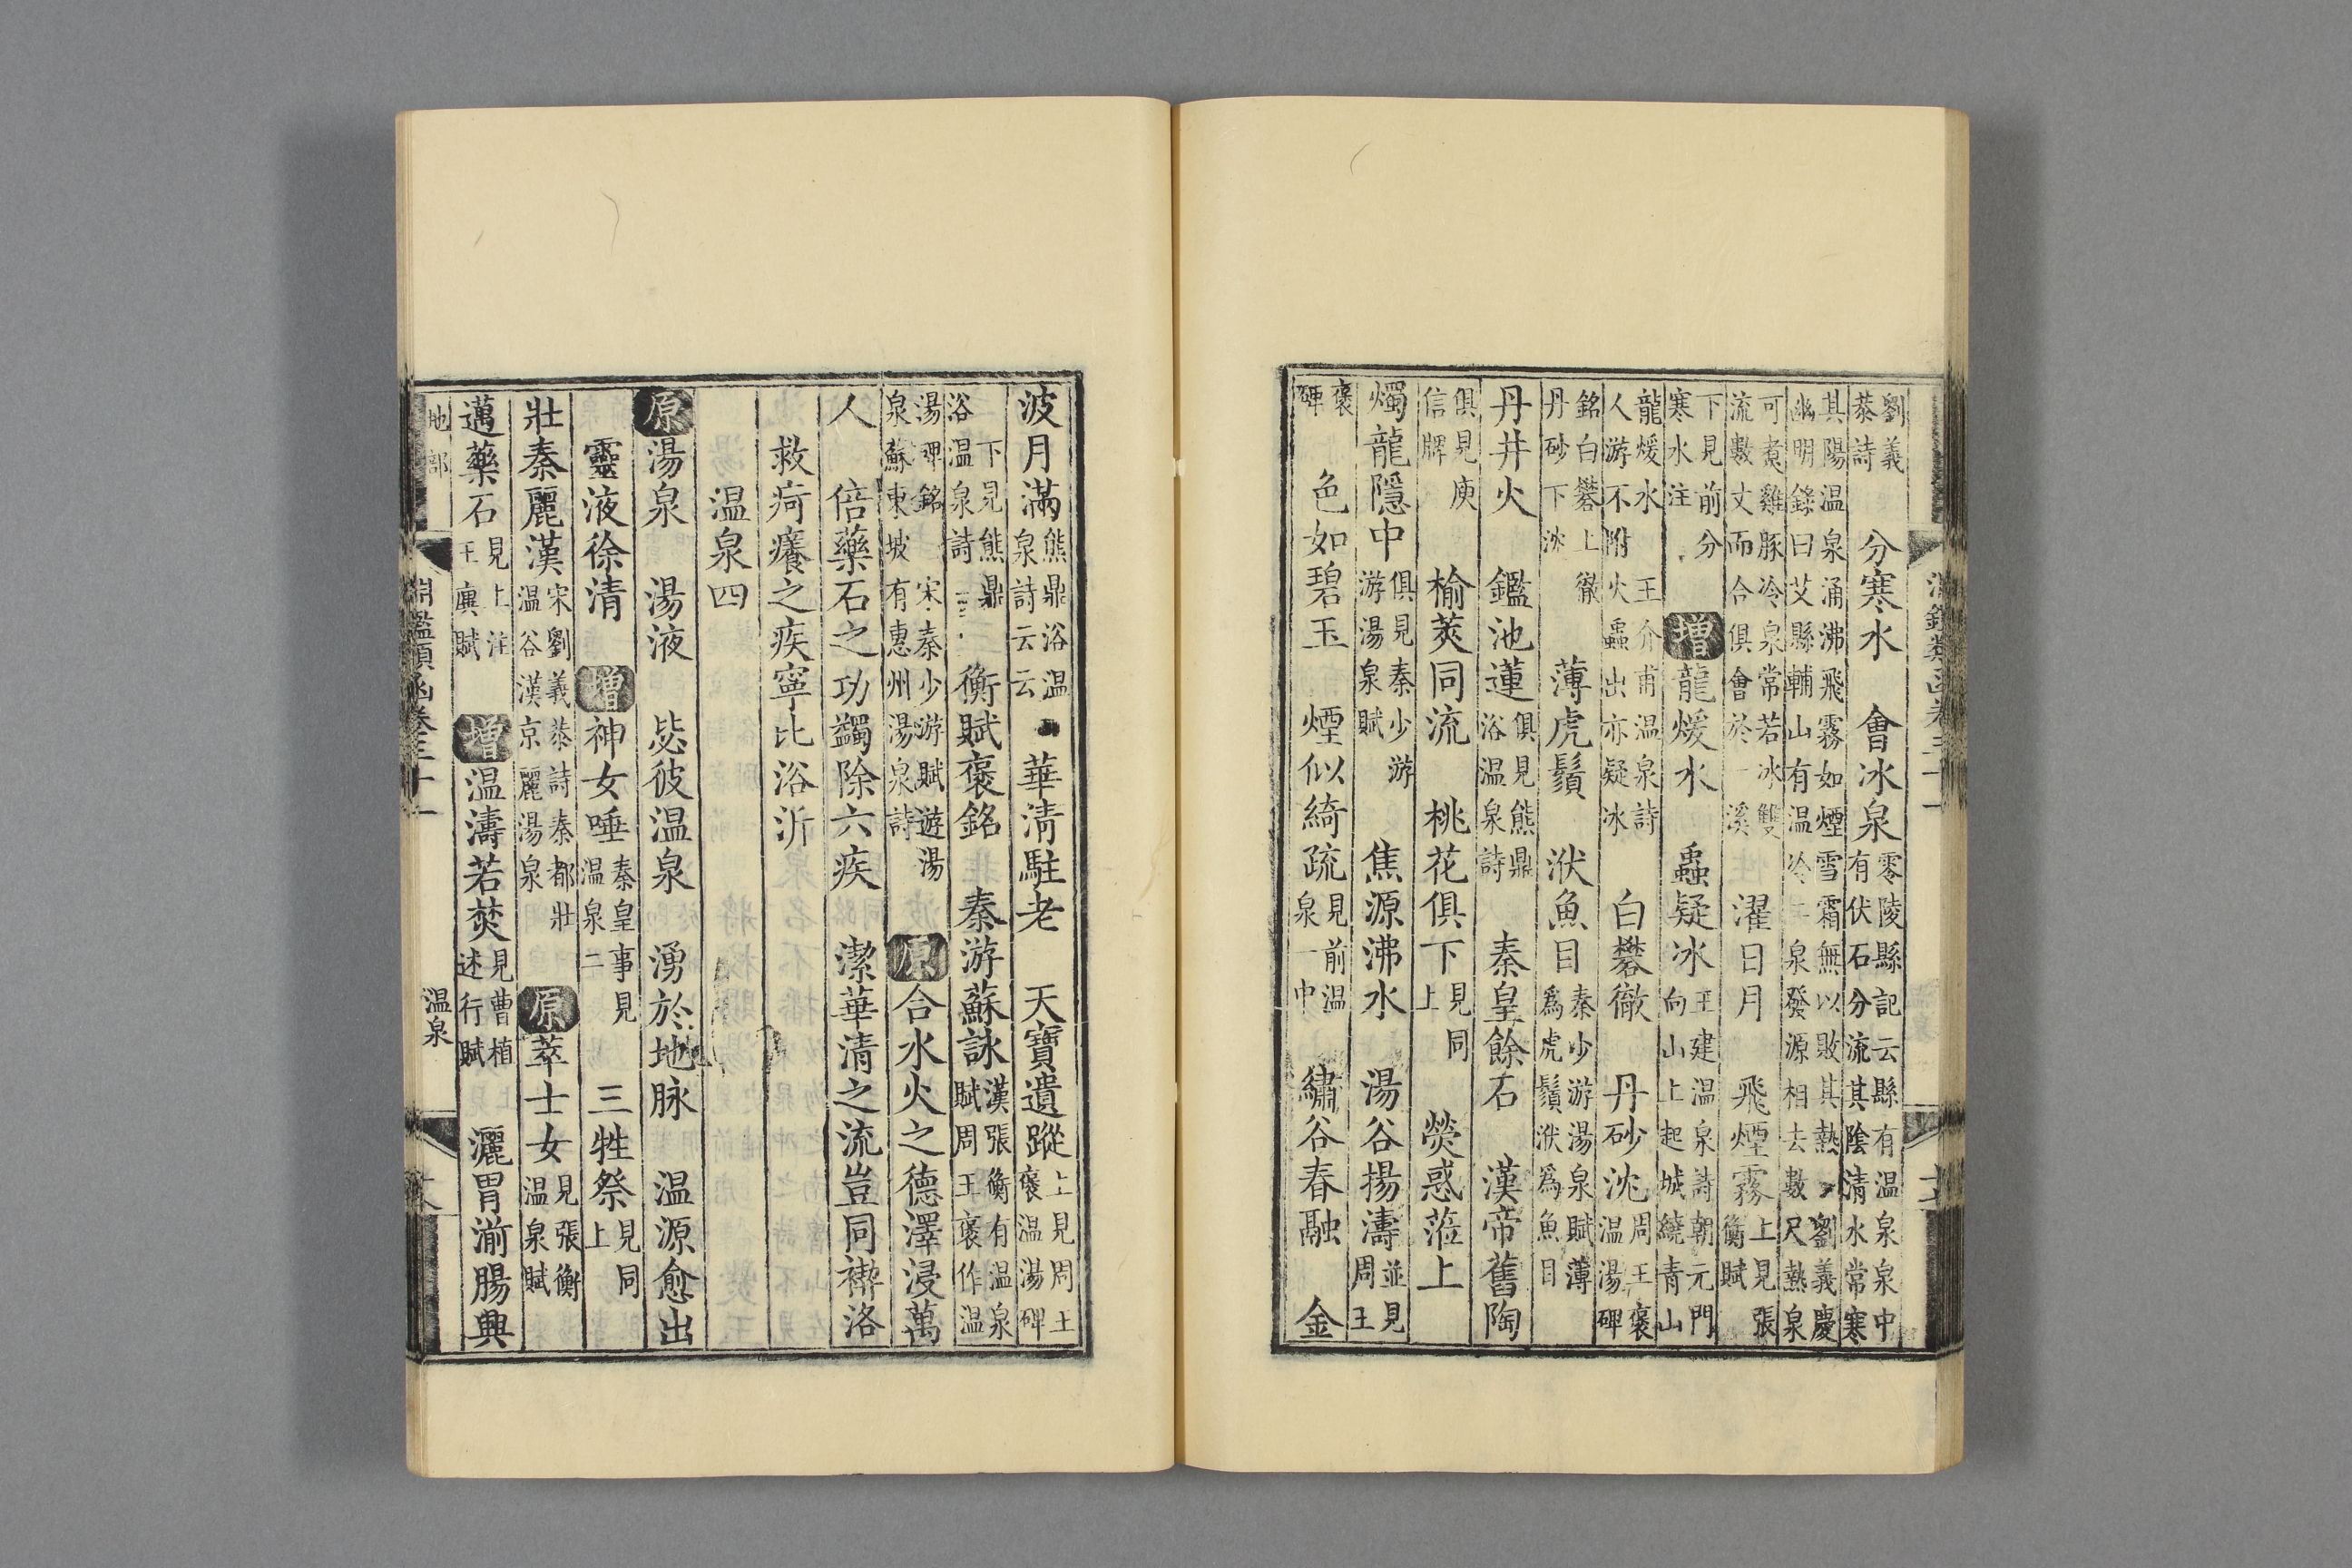 劉義
恭詩
分寒水　會冰泉
零陵縣記云縣有温泉泉中
有伏石分流其陰清水常寒
其陽温泉涌沸飛霧如煙雪霜無以敗其熱　劉義慶
幽明錄曰艾縣輔山有温冷二泉發源相去數尺熱泉
可煮雞豚冷泉常若冰雙
流數丈而合俱會於一溪
濯日月　飛煙霧
上見張
衡賦
下見前分
寒水注
增龍煖水　蟲疑冰
王建温泉詩朝元門
向山上起城繞青山
龍煖水　王介甫温泉詩
人游不附火蟲出亦疑冰
白礬徹　丹砂沈
周王褒
温湯碑
銘白礬上徹
丹砂下沈
薄虎鬚　洑魚目
秦少游湯泉賦薄
爲虎鬚洑爲魚目
丹井火　鑑池蓮
俱見熊鼎
浴温泉詩
秦皇餘石　漢帝舊陶
俱見庾
信牌
榆莢同流　桃花俱下
見同
上
熒惑蒞上
燭龍隱中
俱見秦少游
游湯泉賦
焦源沸水　湯谷揚濤
並見
周王
褒
碑
色如碧玉　煙似綺疏
見前温
泉一中
繡谷春融　金
淵鑑類函卷三十一
波月滿
熊鼎浴温
泉詩云云
華清駐老　天寶遺蹤
上見周王
褒温湯碑
下見熊鼎
浴温泉詩
衡賦褒銘　秦游蘇詠
漢張衡有温泉
賦周王褒作温
湯碑銘　宋秦少游賦遊湯
泉蘇東坡有惠州湯泉詩
原合水火之德澤浸萬
人　倍藥石之功蠲除六疾　潔華清之流豈同禊洛
救疴癢之疾寧比浴沂
温泉四
原湯泉　湯液　毖彼温泉　湧於地脉　温源愈出
靈液徐清　增神女唾
秦皇事見
温泉二
三牲祭
見同
上
壯秦麗漢
宋劉義恭詩秦都壯
温谷漢京麗湯泉
原萃士女
見張衡
温泉賦
邁藥石
見上注
王廙賦
增温濤若焚
見曹植
述行賦
灑胃湔腸興
地部
淵鑑類函卷三十一
温泉